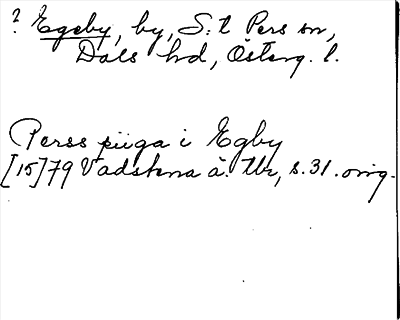 ? Egeby, by, S:t Pers sn,
Dals hd, Österg. l.
Perss piiga i Egby
[15]79 Vadstena ä. tbr, s. 31. orig.